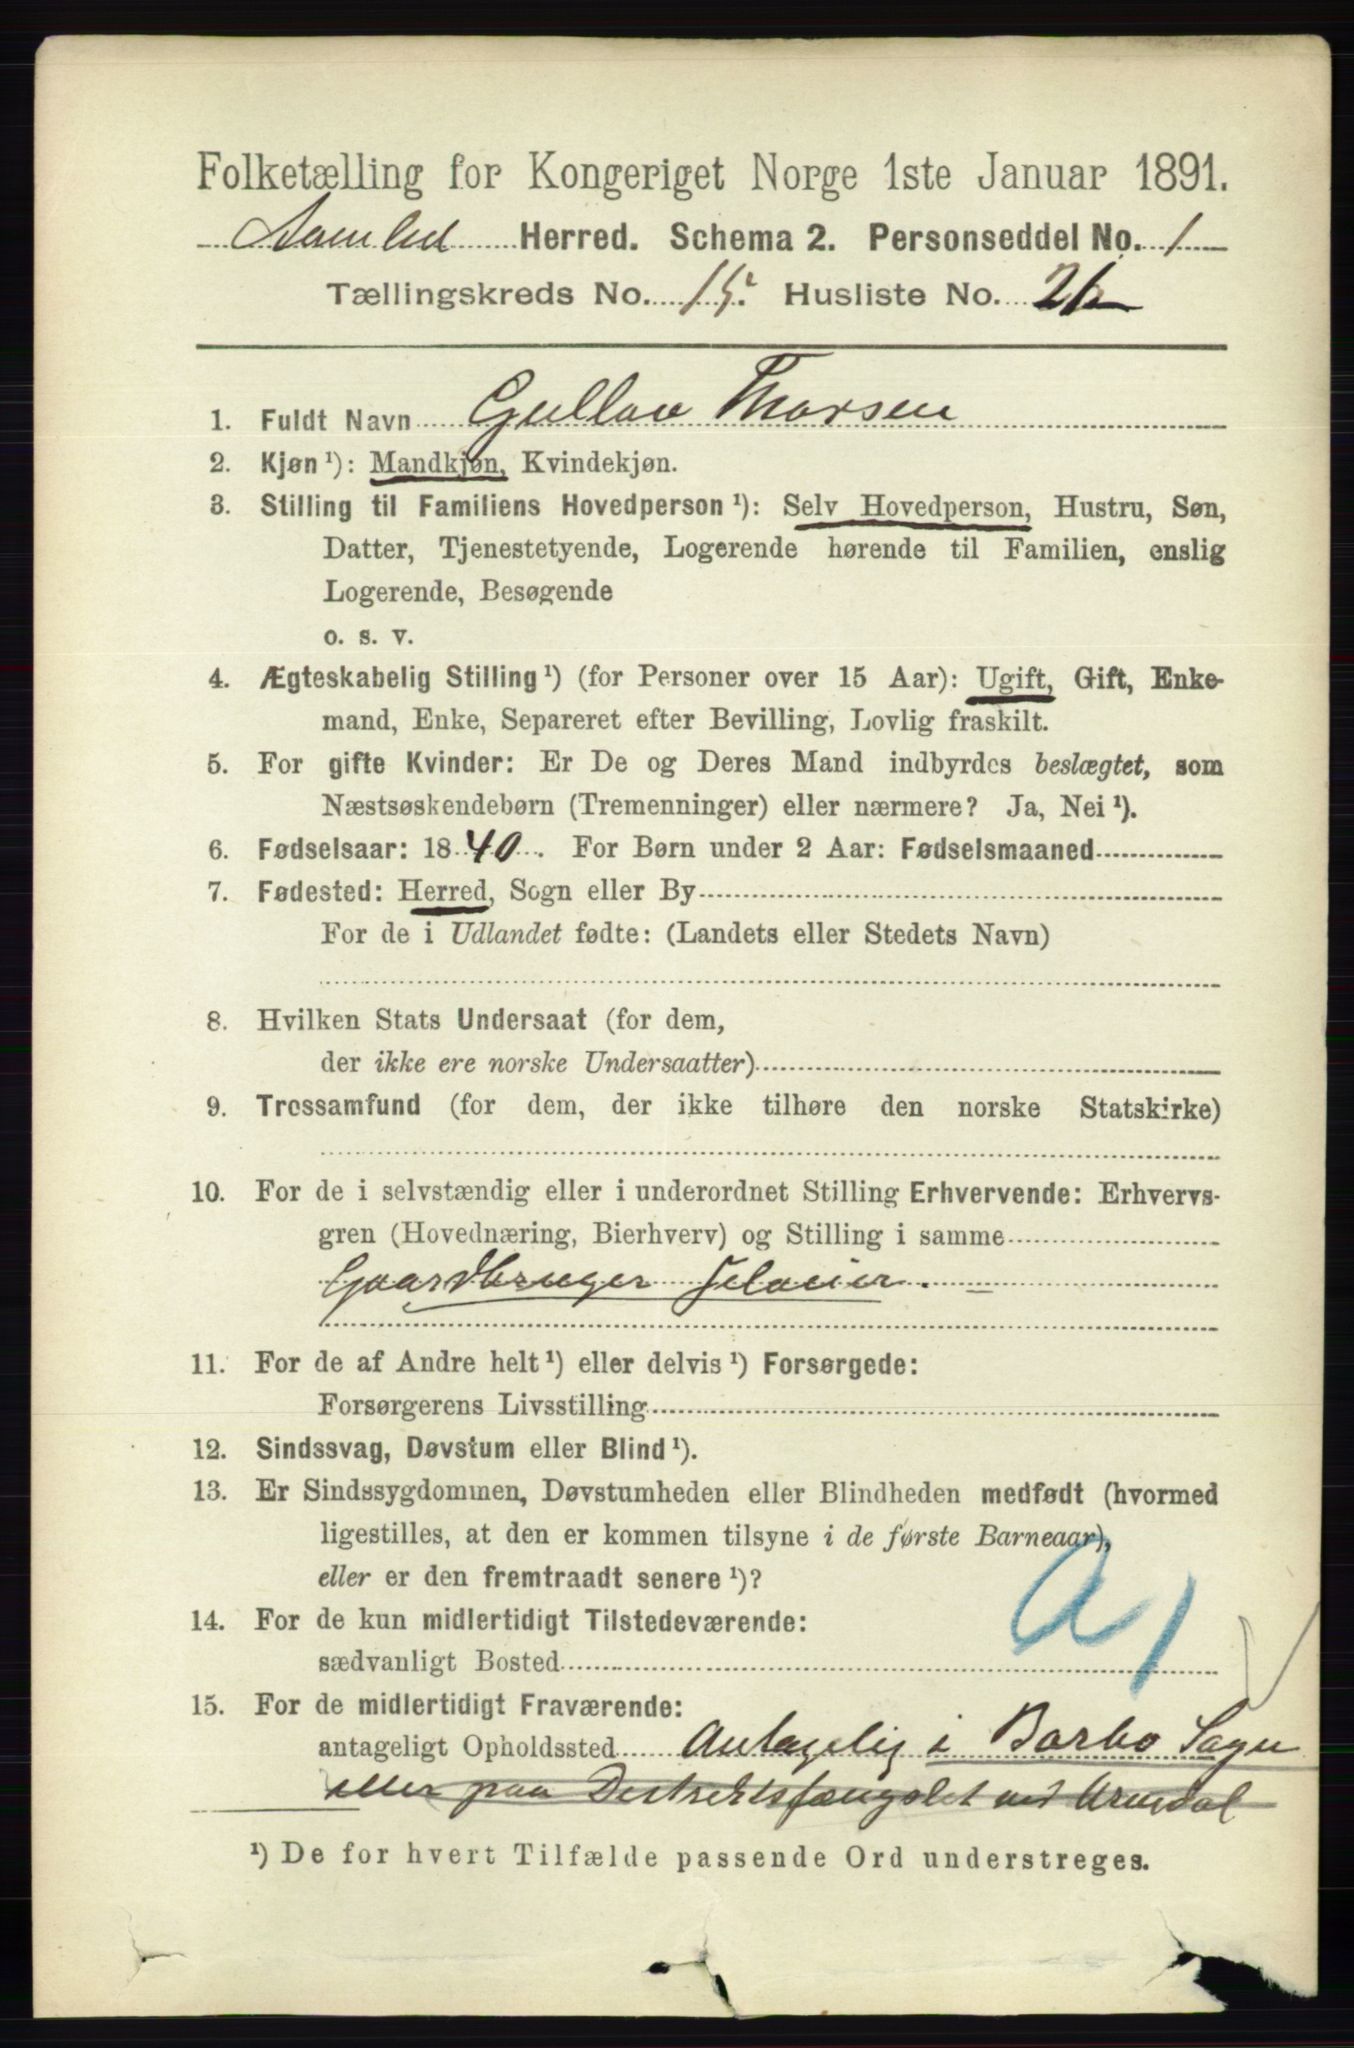 Folketælling for Kongeriget Norge 1ste Januar 1891.
Aamlid Herred. Schema 2. Personseddel No. 1
Tællingskreds No. 15. Husliste No.
1. Fuldt Navn Gullav Thorsen
2. Kjøn ¹): Mandkjøn, Kvindekjøn.
3. Stilling til Familiens Hovedperson ¹): Selv Hovedperson, Hustru, Søn,
Datter, Tjenestetyende, Logerende hørende til Familien, enslig
Logerende, Besøgende
o. s. v.
4. Ægteskabelig Stilling ¹) (for Personer over 15 Aar): Ugift, Gift, Enke-
mand, Enke, Separeret efter Bevilling, Lovlig fraskilt.
5. For gifte Kvinder: Er De og Deres Mand indbyrdes beslægtet, som
Næstsøskendebørn (Tremenninger) eller nærmere? Ja, Nei ¹).
6. Fødselsaar: 1840. For Børn under 2 Aar: Fødselsmaaned
7. Fødested: Herred, Sogn eller By
For de i Udlandet fødte: (Landets eller Stedets Navn)
8. Hvilken Stats Undersaat (for dem,
der ikke ere norske Undersaatter)
9. Trossamfund (for dem, der ikke tilhøre den norske Statskirke)
10. For de i selvstændig eller i underordnet Stilling Erhvervende: Erhvervs-
gren (Hovednæring, Bierhverv) og Stilling i samme
Gaardbruger Selveier.
11. For de af Andre helt ¹) eller delvis ¹) Forsørgede:
Forsørgerens Livsstilling
12. Sindssvag, Døvstum eller Blind ¹).
13. Er Sindssygdommen, Døvstumheden eller Blindheden medfødt (hvormed
ligestilles, at den er kommen tilsyne i de første Barneaar),
eller er den fremtraadt senere ¹)?
14. For de kun midlertidigt Tilstedeværende:
sædvanligt Bosted
15. For de midlertidigt Fraværende:
antageligt Opholdssted Antagelig i Barbo Sogn
eller paa Distriktsfængslet ved Arendal
¹) De for hvert Tilfælde passende Ord understreges.